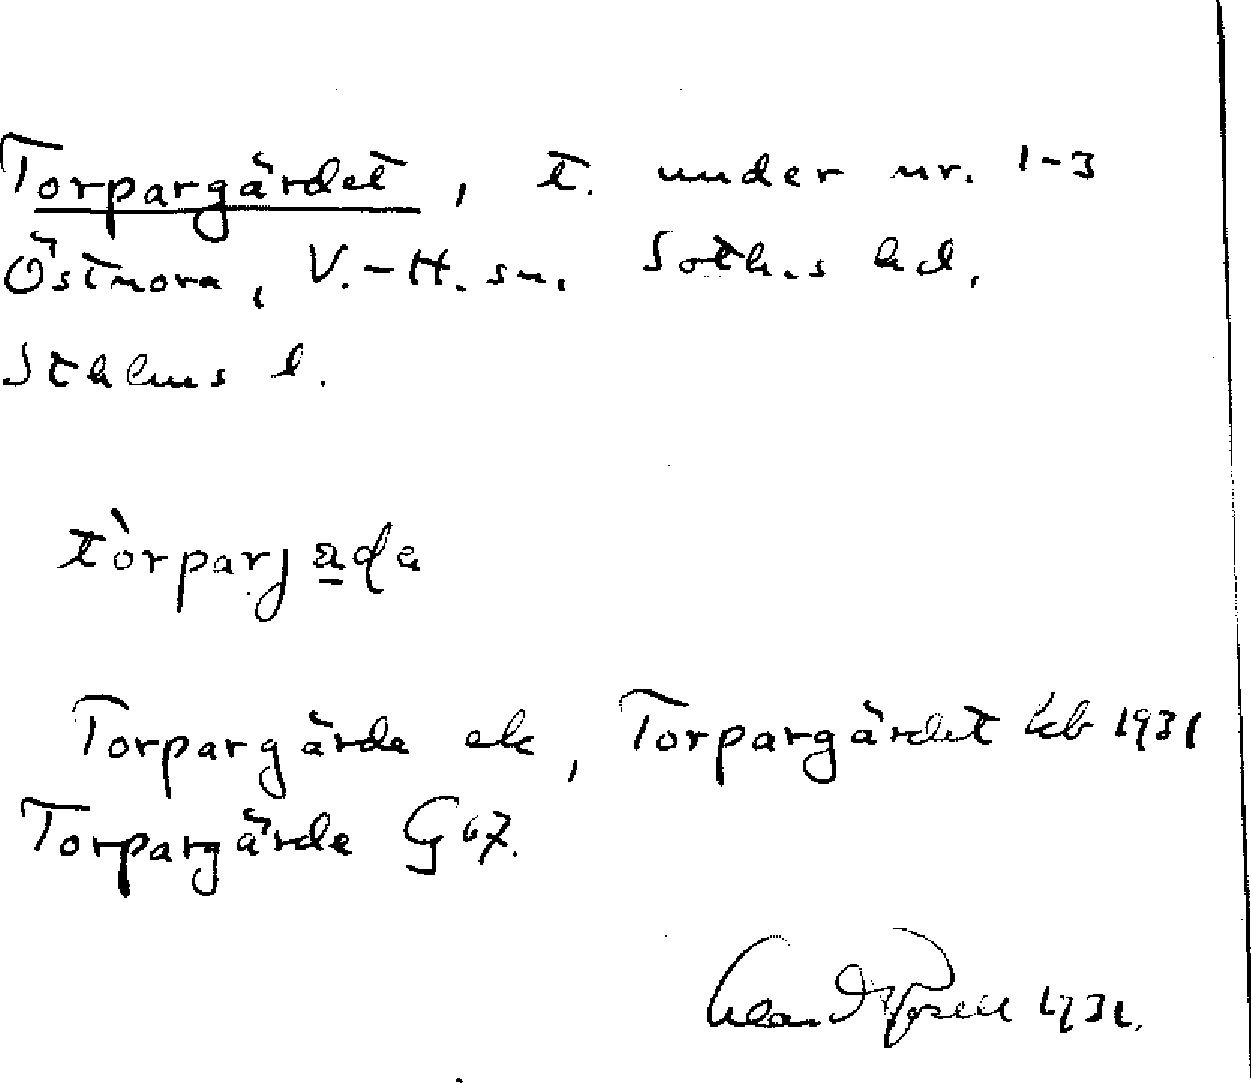 Torpargärdet, t. under nr. 1-3
Östnora, V.-H. sn. Soth.s hd,
Sthlms l.
Torpargärde ek, Torpargärdet kb 1931
Torpargärde G 67.
1931.